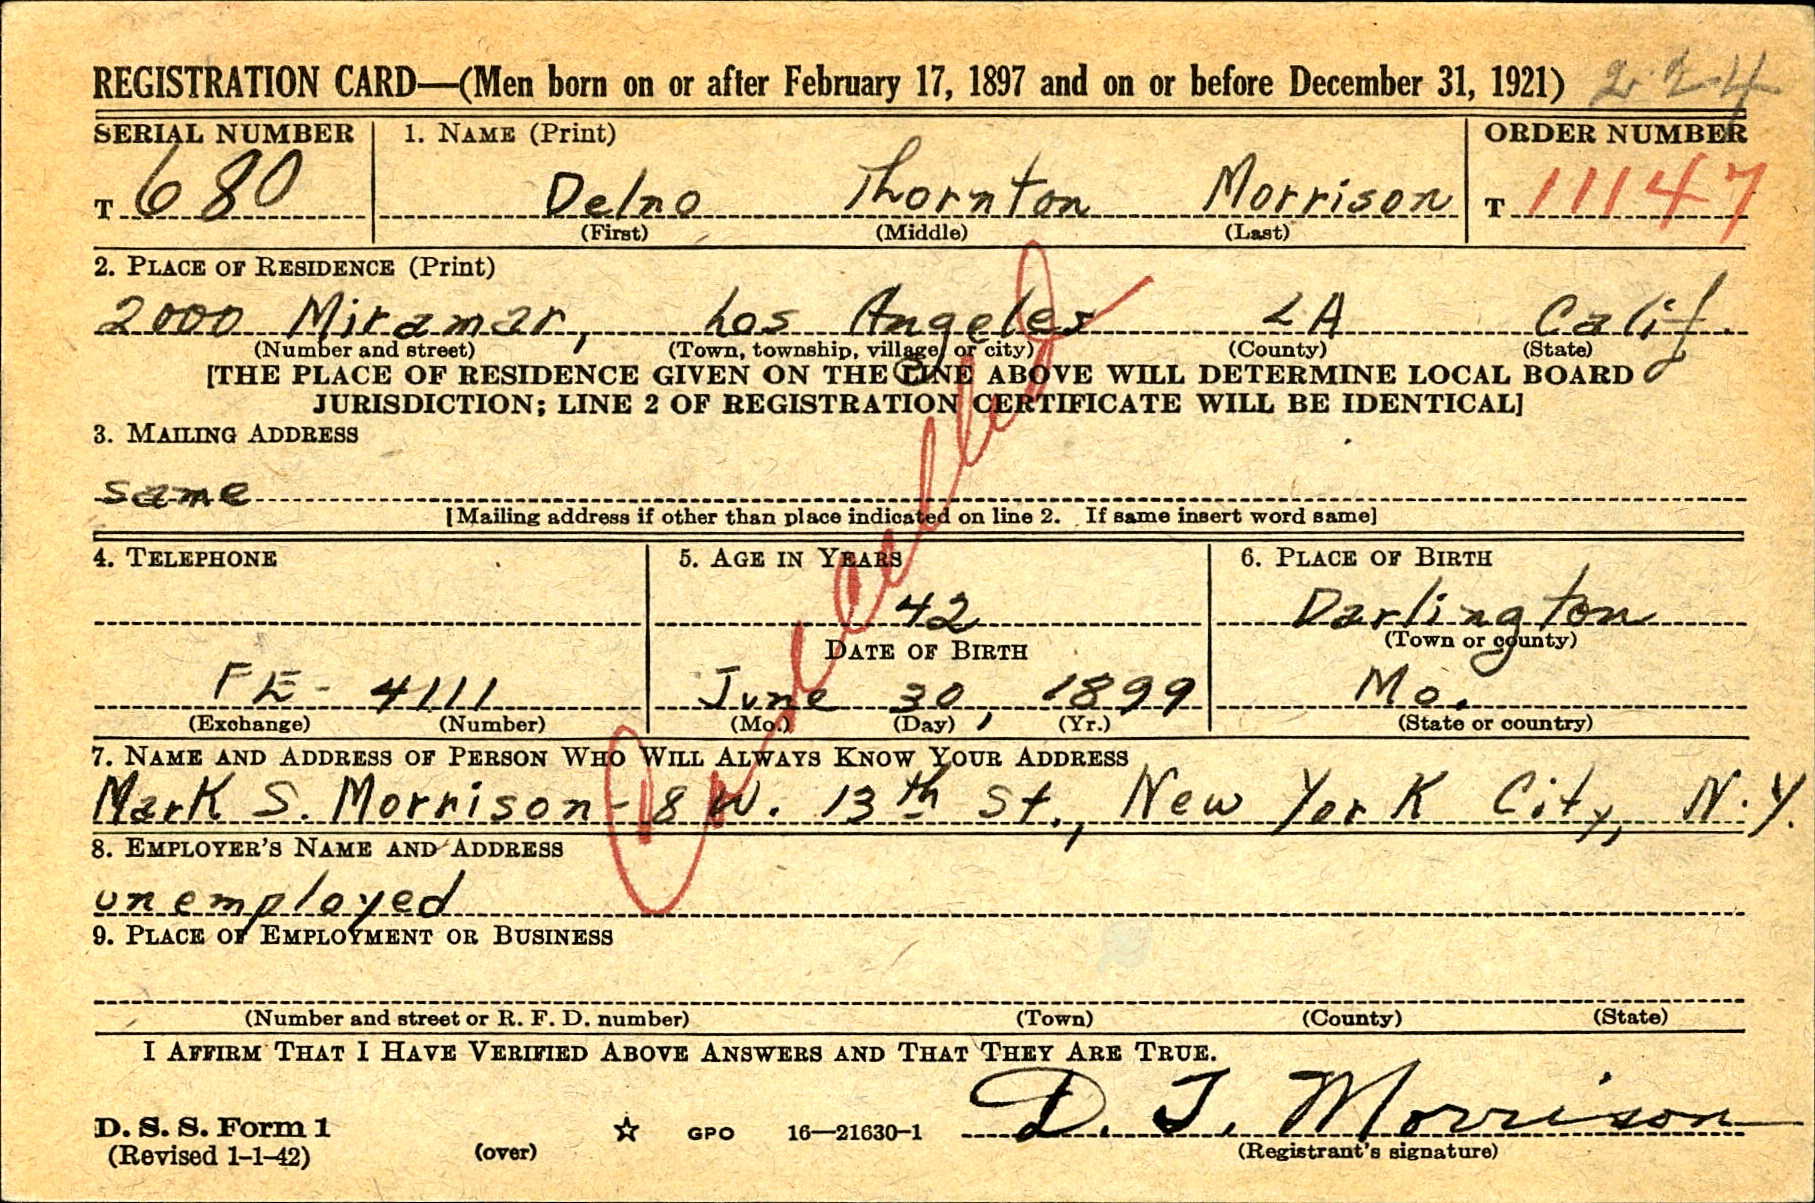 REGISTRATION CARD—(Men born on or after February 17, 1897 and on or before December 31, 1921) 224
SERIAL NUMBER 1. NAME (Print) ORDER NUMBER
T 680 Delno Thornton Morrison T 11147
(First) (Middle) (Last)
2. PLACE OF RESIDENCE (Print)
2000 Miramar, Los Angeles LA Calif.
(Number and street) (Town, township, village, or city) (County) (State)
[THE PLACE OF RESIDENCE GIVEN ON THE LINE ABOVE WILL DETERMINE LOCAL BOARD
JURISDICTION; LINE 2 OF REGISTRATION CERTIFICATE WILL BE IDENTICAL]
3. MAILING ADDRESS
same
[Mailing address if other than place indicated on line 2. If same insert word same]
Cancelled
4. TELEPHONE 5. AGE IN YEARS 6. PLACE OF BIRTH
42 Darlington
DATE OF BIRTH (Town or county)
FE- 4111 June 30, 1899 Mo.
(Exchange) (Number) (Mo.) (Day) (Yr.) (State or country)
7. NAME AND ADDRESS OF PERSON WHO WILL ALWAYS KNOW YOUR ADDRESS
Mark S. Morrison - 8 W. 13th St., New York City, N.Y.
8. EMPLOYER'S NAME AND ADDRESS
unemployed
9. PLACE OF EMPLOYMENT OR BUSINESS
(Number and street or R. F. D. number) (Town) (County) (State)
I AFFIRM THAT I HAVE VERIFIED ABOVE ANSWERS AND THAT THEY ARE TRUE.
D. S. S. Form 1
(Revised 1-1-42) (over) GPO 16—21630-1 D. T. Morrison
(Registrant's signature)